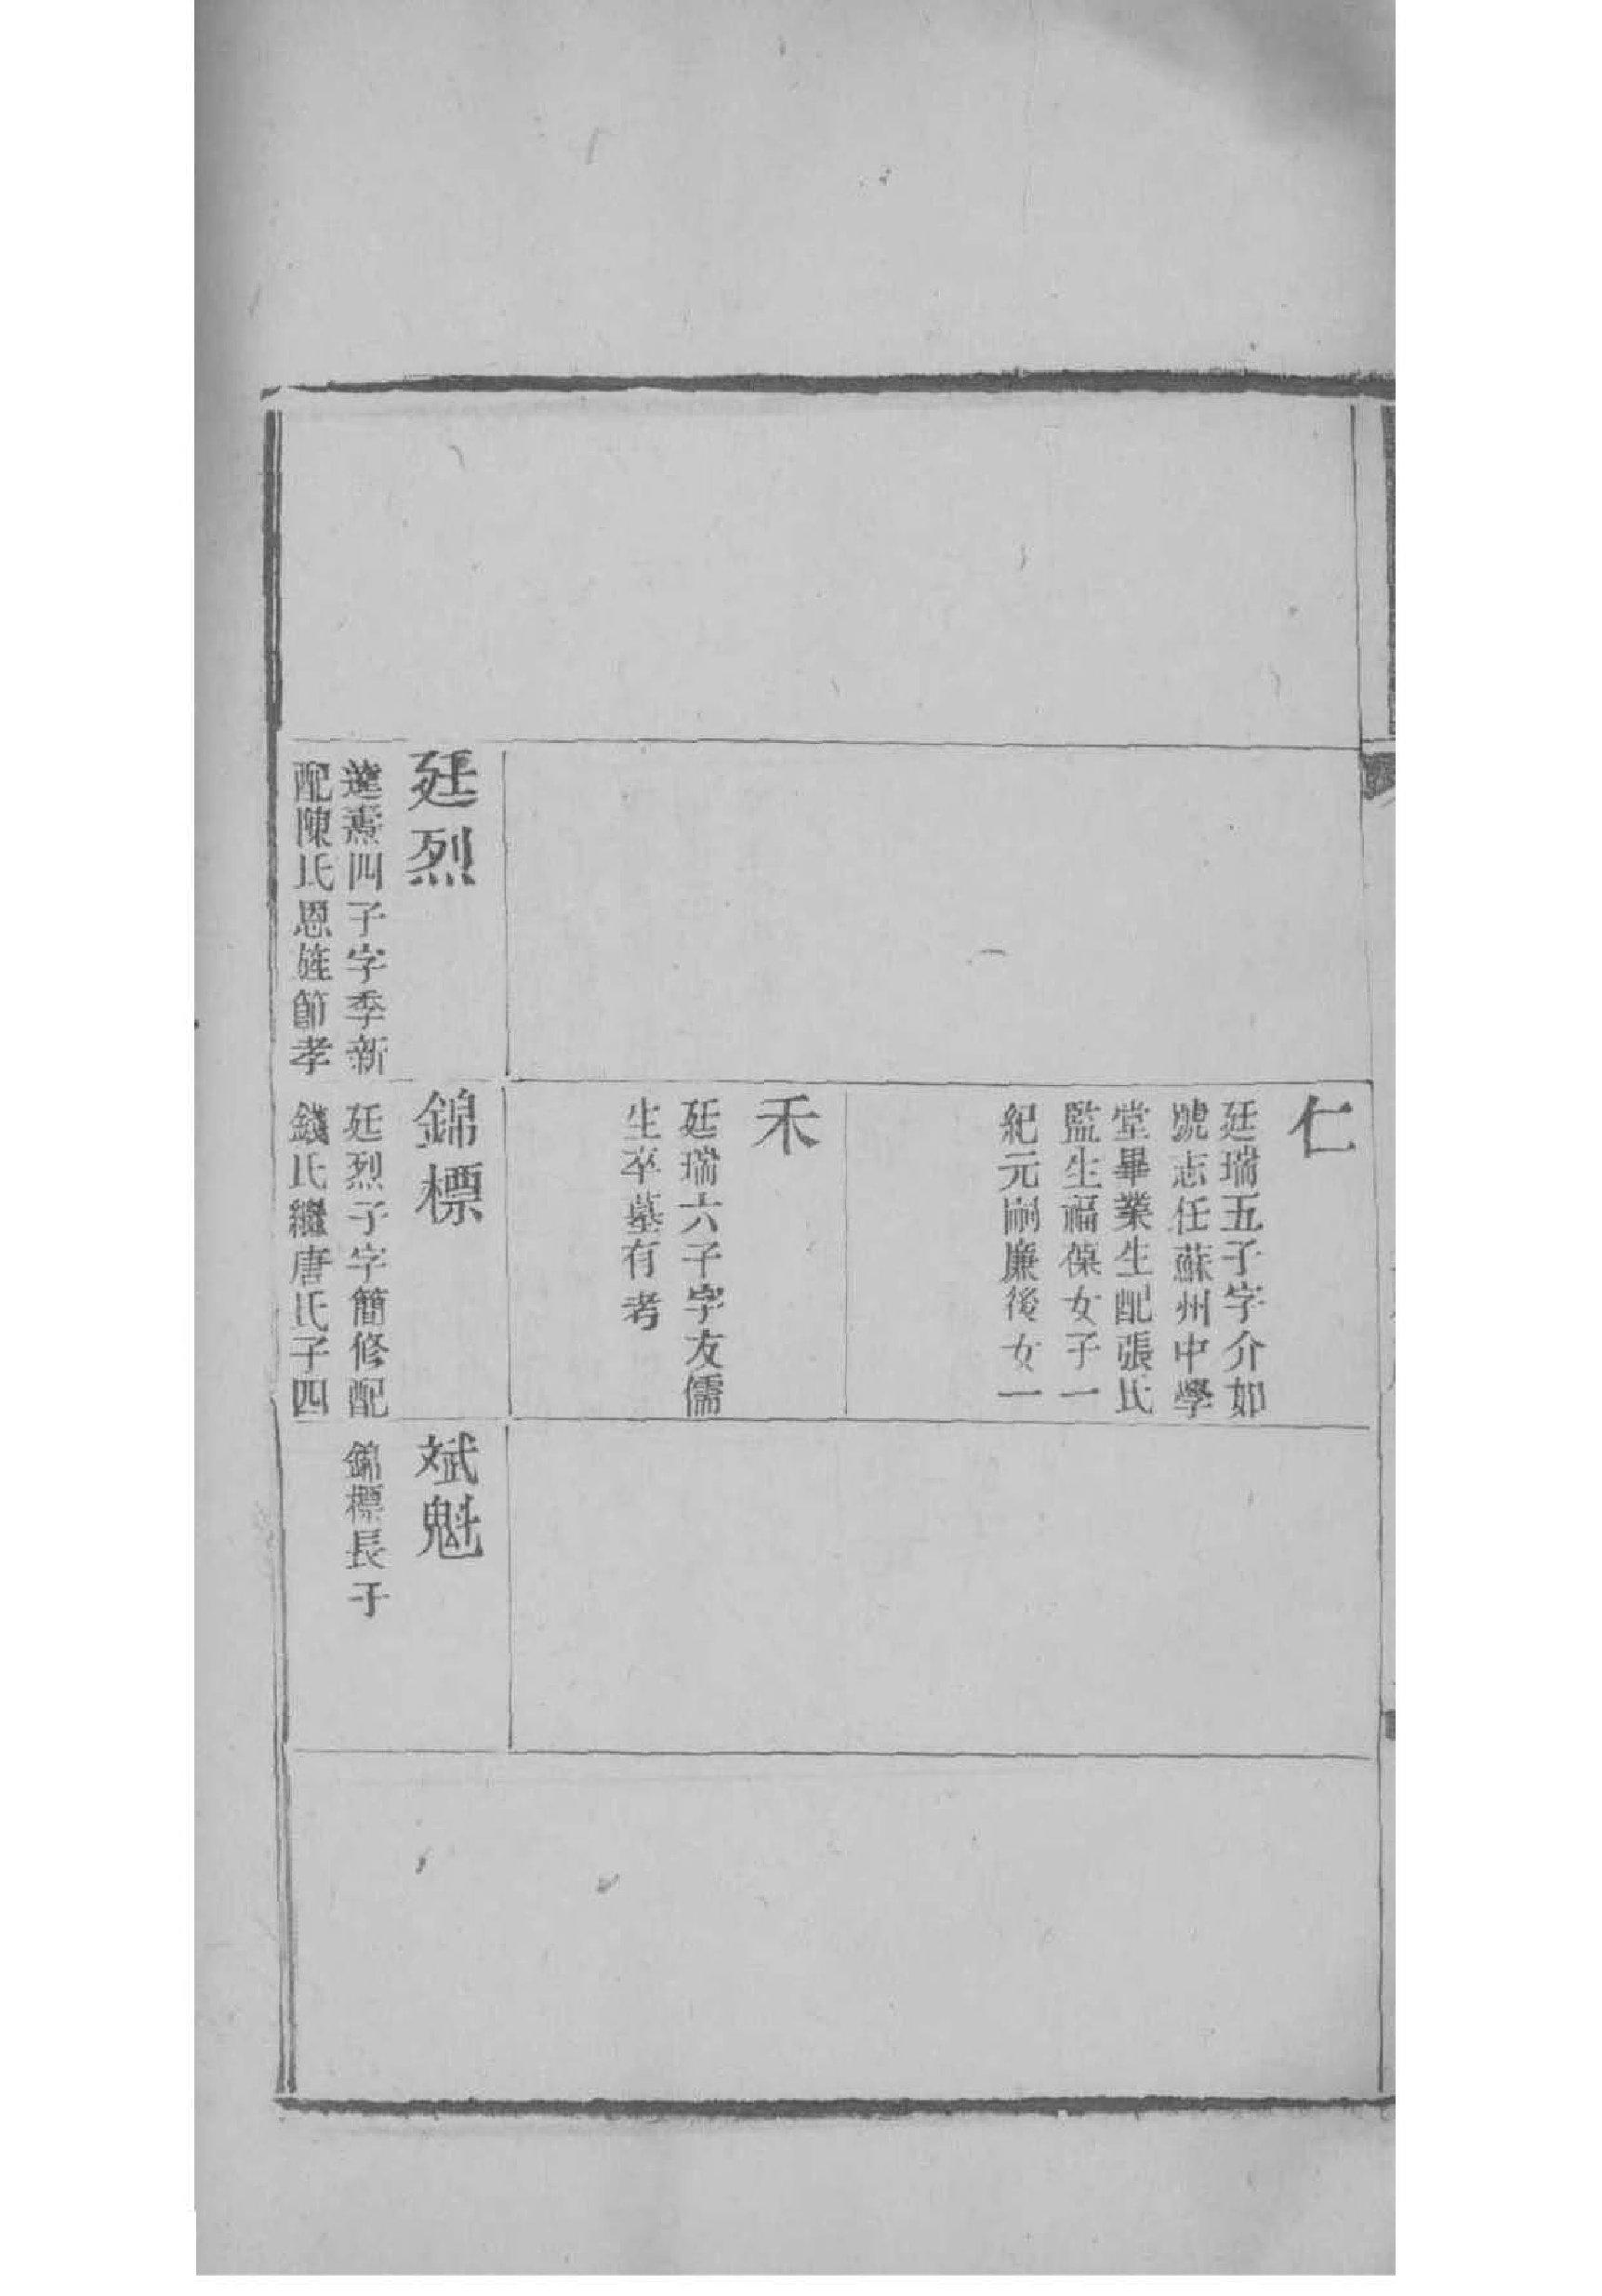 仁
廷瑞五子字介如
號志任蘇州中學
堂畢業生配張氏
監生福葆女子一
紀元嗣廉後女一
禾
廷瑞六子字友儒
生卒墓有考
廷烈
蓮燾四子字季新
配陳氏恩旌節孝
錦標
廷烈子字簡修配
錢氏繼唐氏子四
斌魁
錦標長子